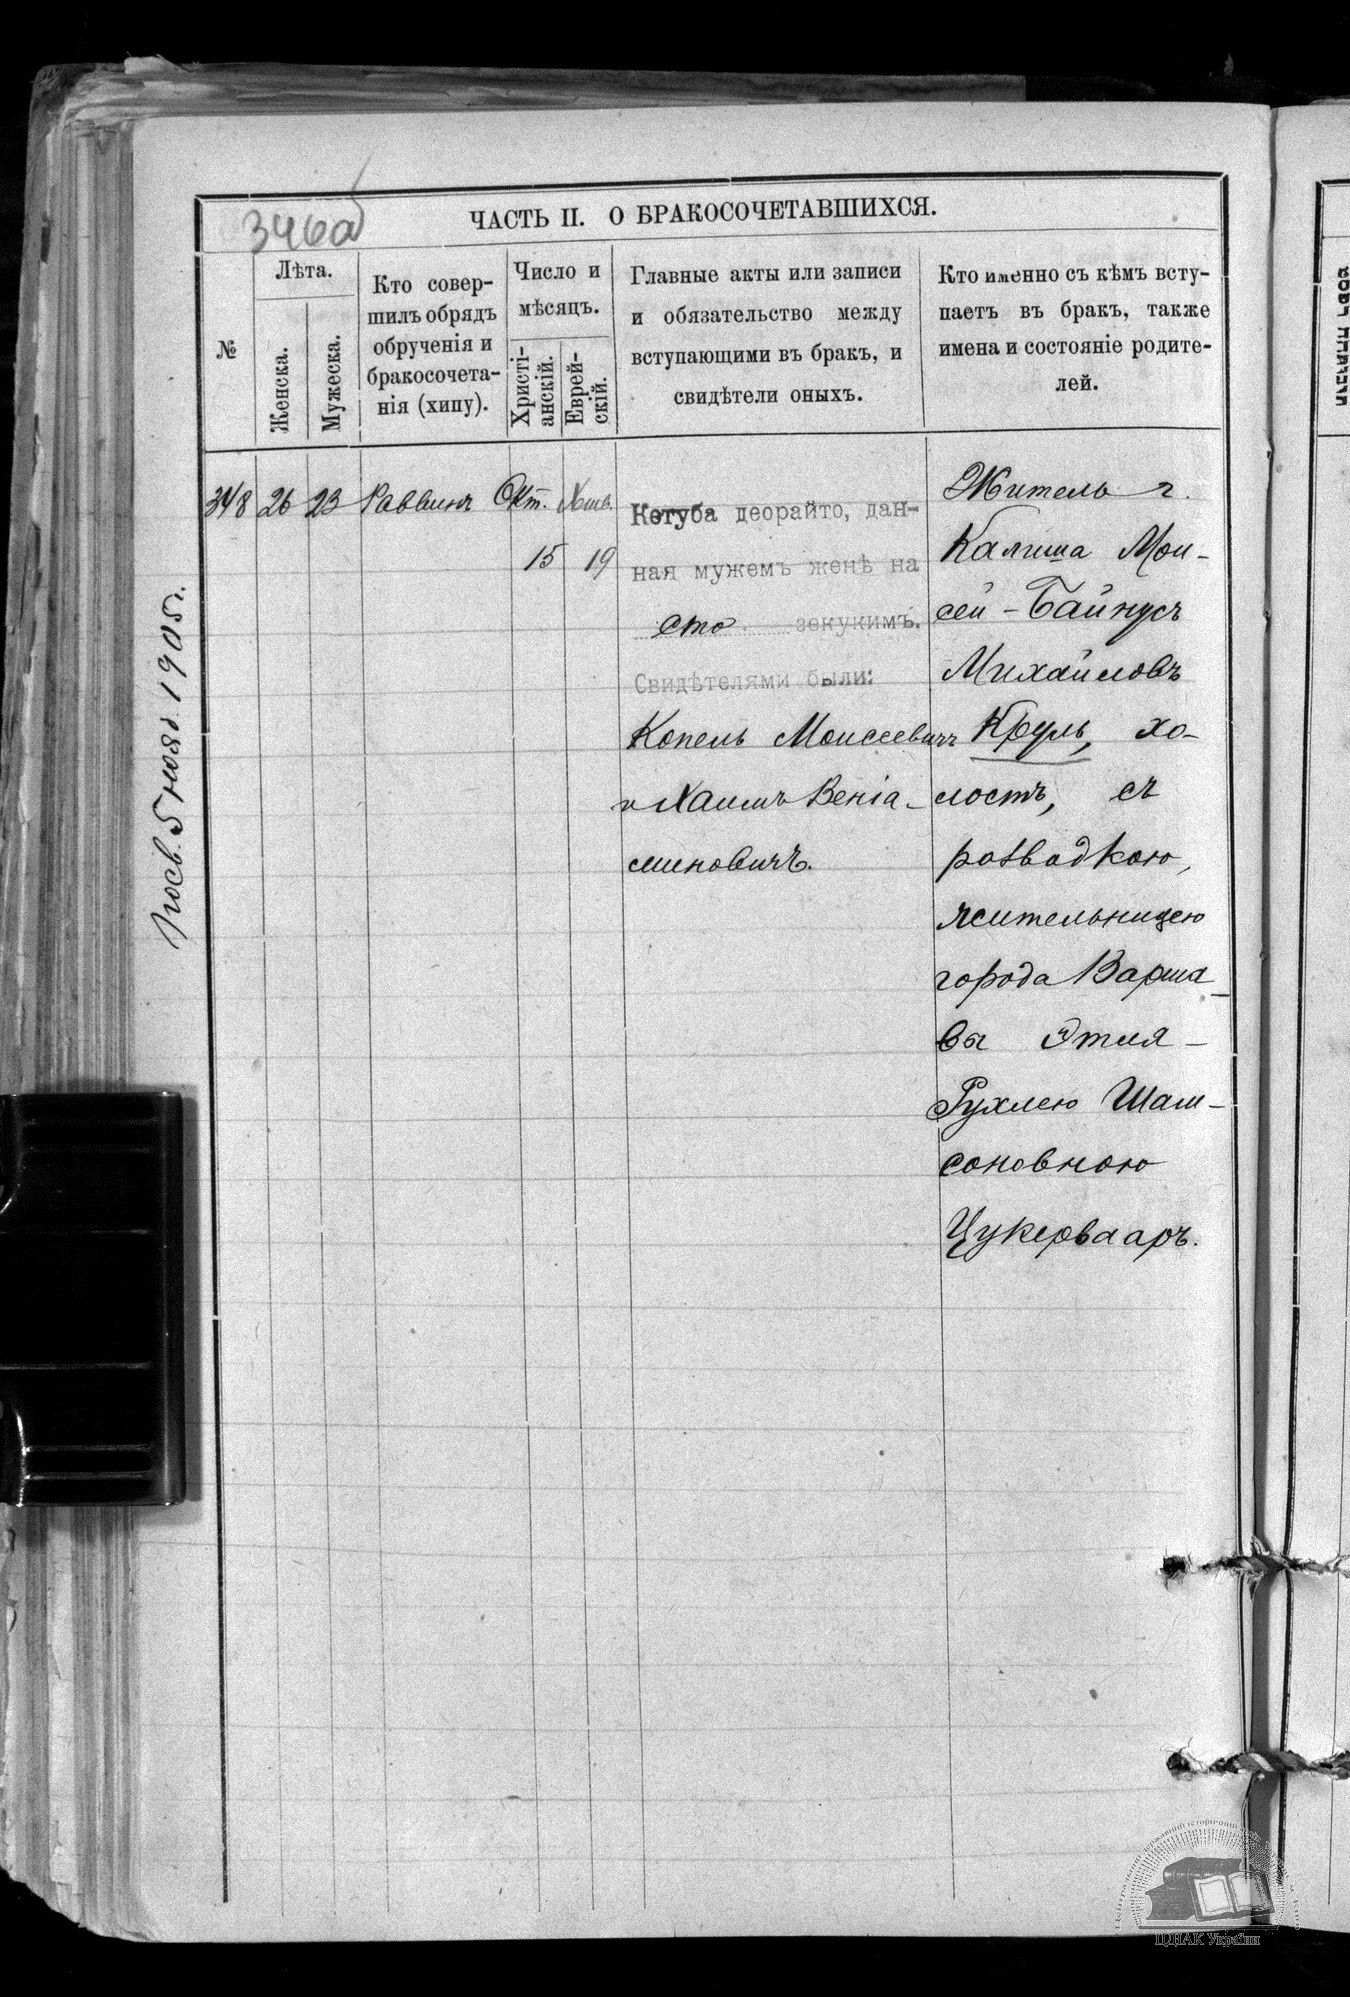 346об
ЧАСТЬ II. О БРАКОСОЧЕТАВШИХСЯ.
№
Лѣта.
Женска.
Мужеска.
Кто совер-
шилъ обрядъ
обрученія и
бракосочета-
нія (хипу).
Число и
мѣсяцъ.
Христі-
анскій.
Еврей-
скій.
Главные акты или записи
и обязательство между
вступающими въ брак, и
свидѣтели оныхъ.
Кто именно съ кѣмъ всту-
паетъ въ бракъ, также
имена и состояніе родите-
лей.
348 26 23 Раввинъ Окт. Хешв.
15 19
Кетуба деорайто, дан-
ная мужемъ женѣ на
сто зекукимъ.
Свидѣтелями были:
Копель Моисеевичъ
и Хаимъ Веніа-
миновичъ.
Житель г.
Калиша Мои-
сей-Байнусъ
Михайловъ
Круль, хо-
лостъ, съ
розводкою,
жительницею
города Варша-
вы Этля-
Рухлею Шам-
соновною
Цукервааръ.
Посв. 5 нояб. 1905 г.
ЦДІАК України